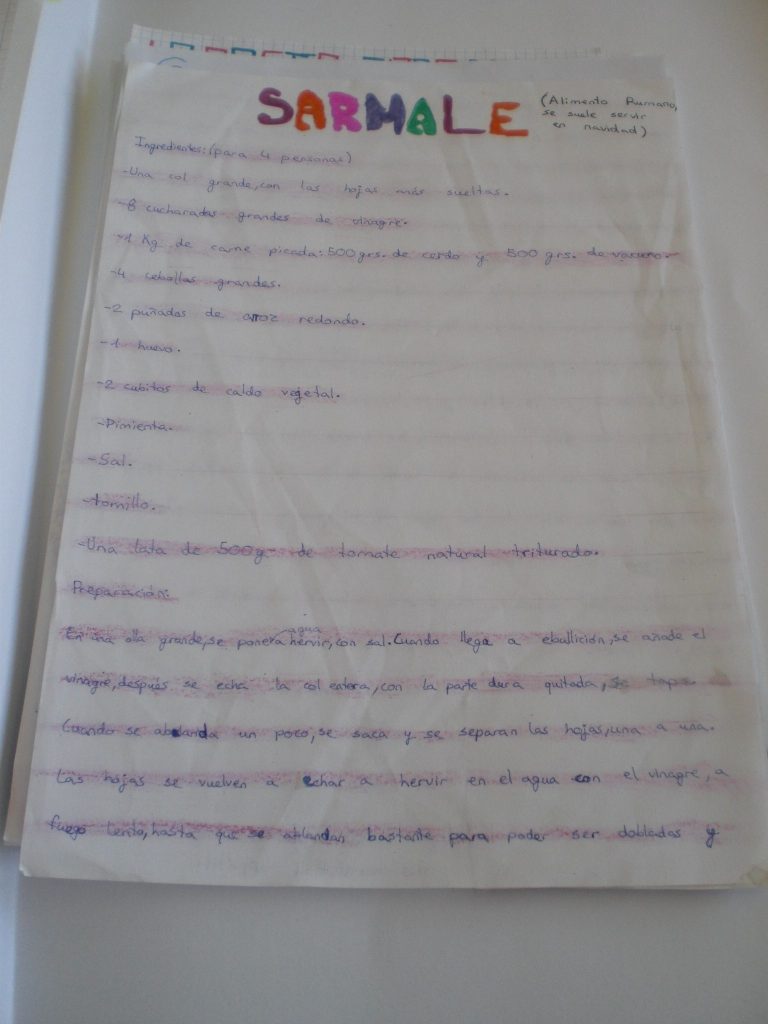 SARMALE
(Alimento Rumano,
se suele servir
en navidad)
Ingredientes:(para 4 personas)
-Una col grande,con las hojas más sueltas.
-8 cucharadas grandes de vinagre.
-1 Kg de carne picada:500grs. de cerdo y 500 grs. de vacuno.
-4 cebollas grandes.
-2 puñados de arroz redondo.
-1 huevo.
-2 cubitos de caldo vegetal.
-Pimienta.
-Sal.
-tomillo.
-Una lata de 500g de tomate natural triturado.
Preparación:
agua
En una olla grande,se pone a hervir,con sal.Cuando llega a ebullición,se añade el
vinagre,después se echa la col entera,con la parte dura quitada, se tapa.
Cuando se ablanda un poco,se saca y se separan las hojas,una a una.
Las hojas se vuelven a echar a hervir en el agua con el vinagre, a
fuego lento,hasta que se ablandan bastante para poder ser doblados y